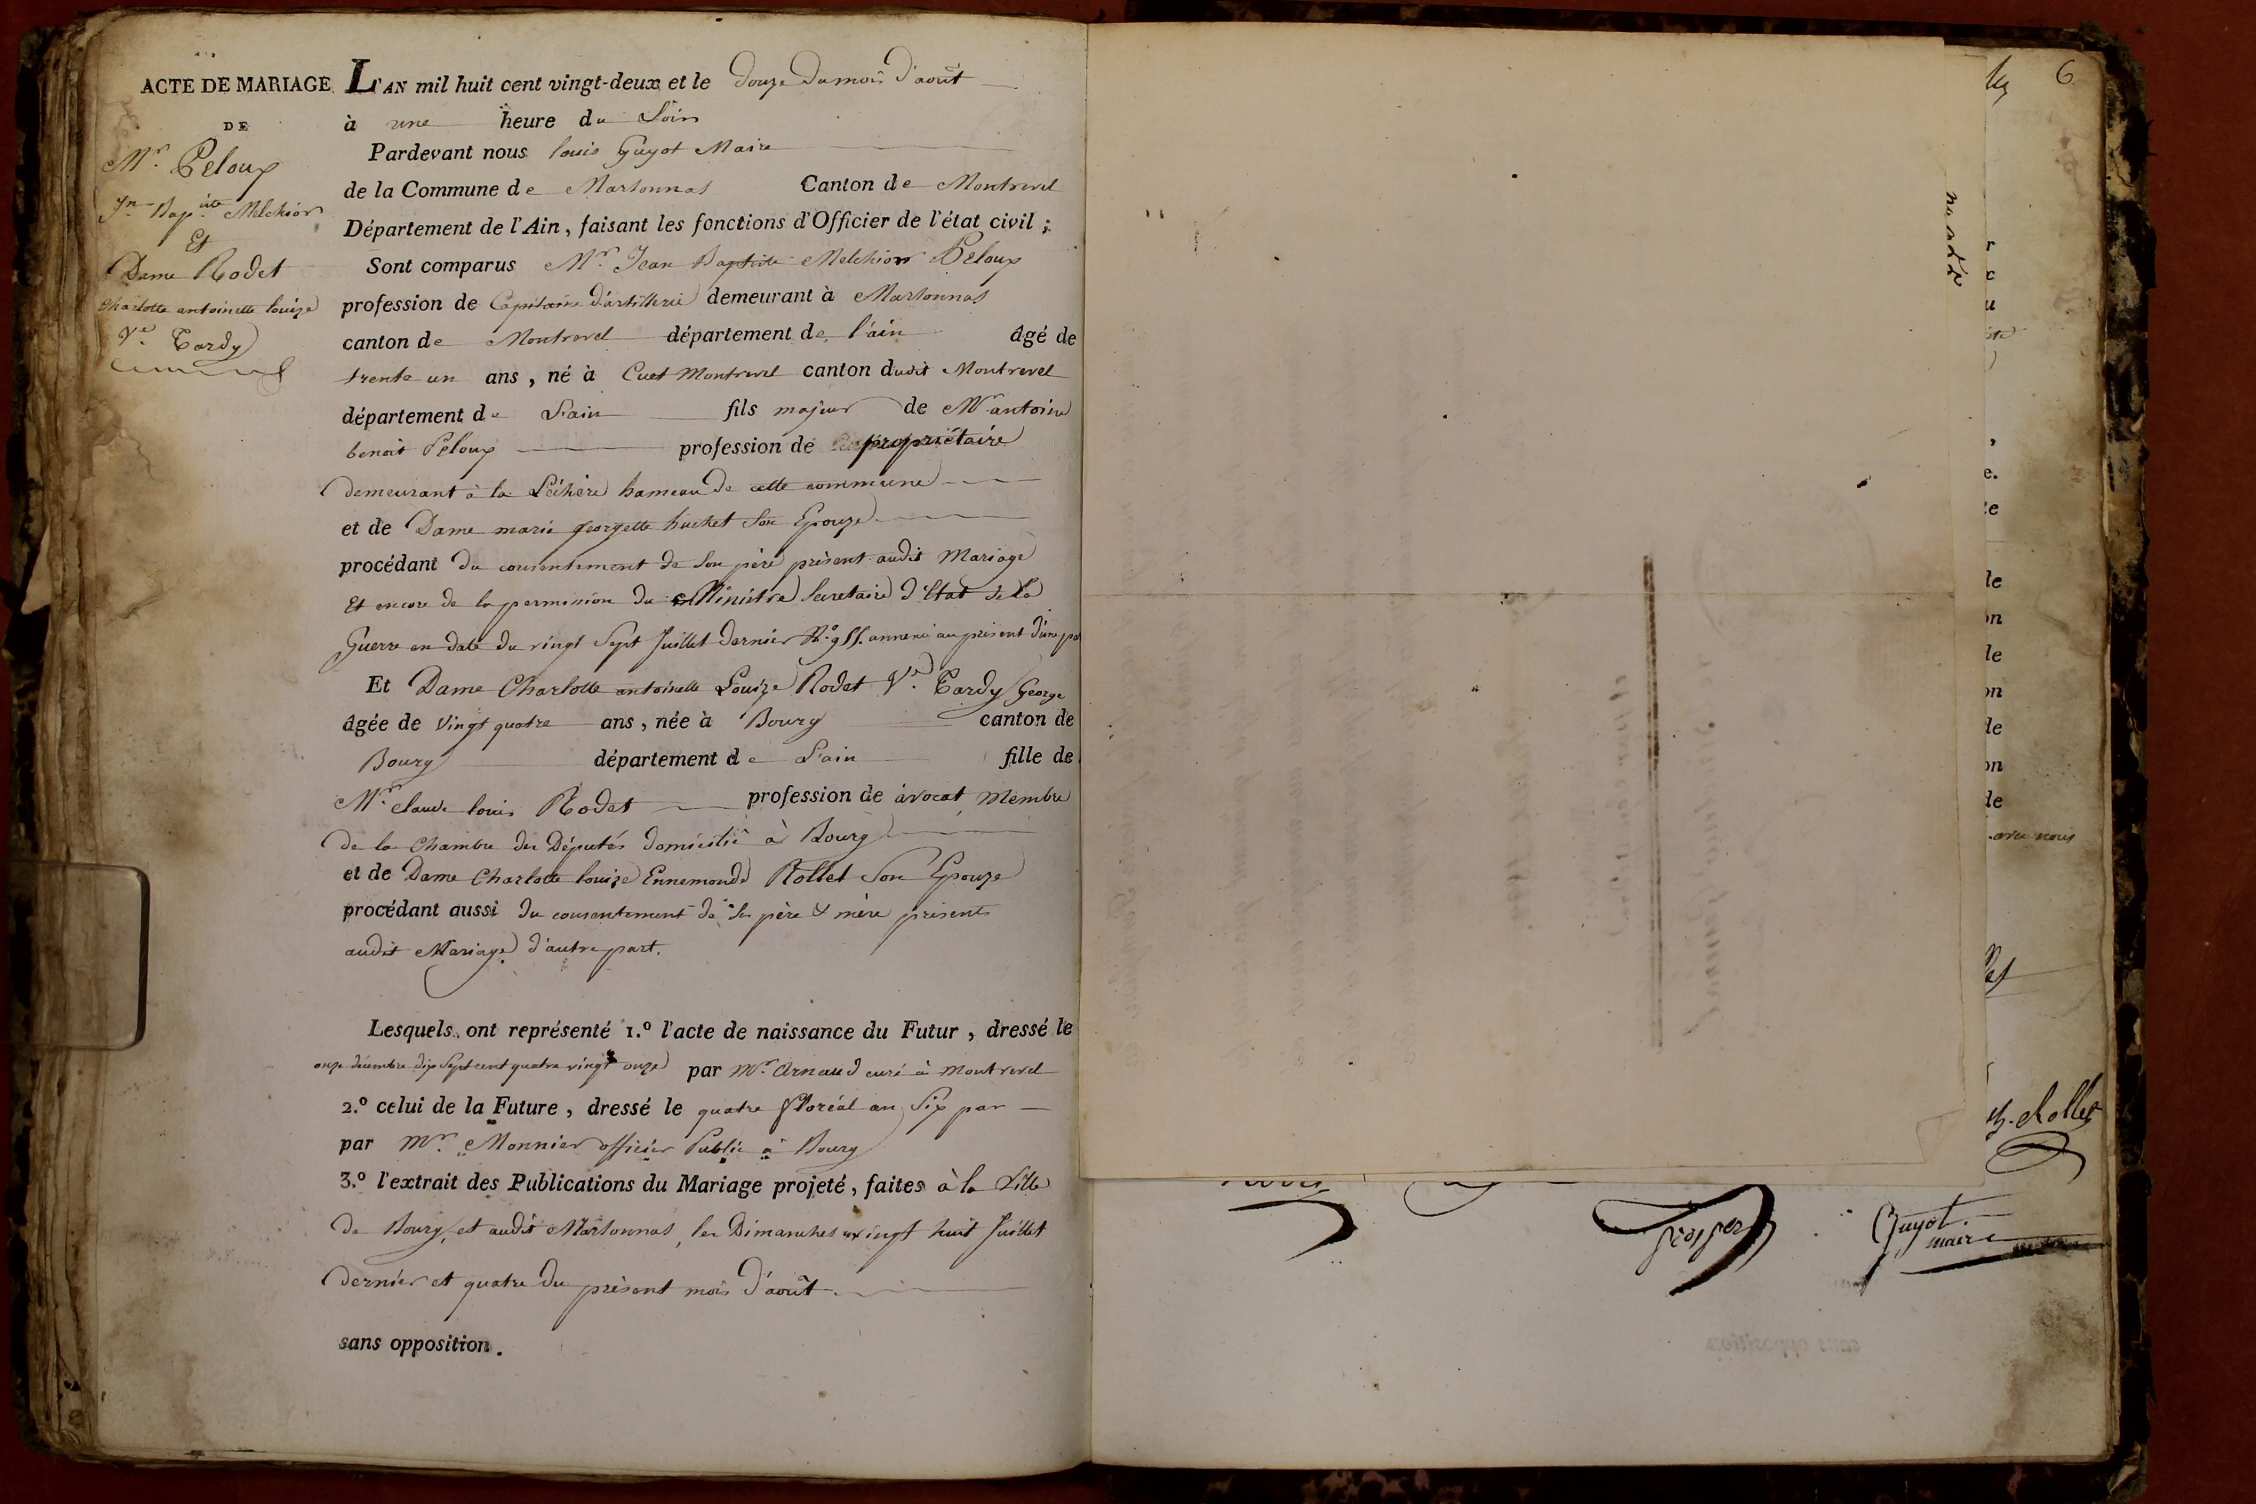 ACTE DE MARIAGE
DE
Mr. Peloux
Jn. Bapite. Melchior
Et
Dame Rodet
Charlotte antoinette louize
Ve. Tardy
L'AN mil huit cent vingt-deux et le douze du mois d'août
à une heure du Soir
Pardevant nous louis Guyot Maire
de la Commune de Marsonnas Canton de Montrevel
Département de l'Ain, faisant les fonctions d'Officier de l'état civil;
Sont comparus Mr. Jean Baptiste Melchior Peloux
profession de Capitaine d'artillerie demeurant à Marsonnas
canton de Montrevel département de l'ain âgé de
trente un ans, né à Cuet Montrevel canton dudit Montrevel
département de L'ain fils majeur de Mr antoine
benoit Peloux profession de propriétaire
demeurant à la Léchère hameau de cette commune
et de Dame marie georgette huchet Son Epouze
procédant du consentement de Son père présent audit Mariage
Et encore de la permission du Ministre Secretaire d'Etat de la
Guerre en date du vingt Sept Juillet dernier annexé au présent d'une
Et Dame Charlotte antoinette Louize Rodet Ve. Tardy George
âgée de vingt quatre ans, née à Bourg canton de
Bourg département de L'ain fille de
Mr. claude louis Rodet profession de avocat, Membre
de la Chambre des Députés domicilié à Bourg
et de Dame Charlotte louize Ennemonde Rollet Son Epouze
procédant aussi du consentement de Ses père & mère présents
audit Mariage d'autre part.
Lesquels ont représenté 1.º l'acte de naissance du Futur, dressé le
onze décembre dix Sept cent quatre vingt onze par Mr. Arnaud curé à Montrevel
2.º celui de la Future, dressé le quatre floréal an Six par
par Mr. Monnier officier Public à Bourg
3.º l'extrait des Publications du Mariage projeté, faites à la Ville
de Bourg, et audit Marsonnas, les Dimanches vingt huit Juillet
dernier et quatre du présent mois d'août
sans opposition.
6
avec nous
Guyot
maire